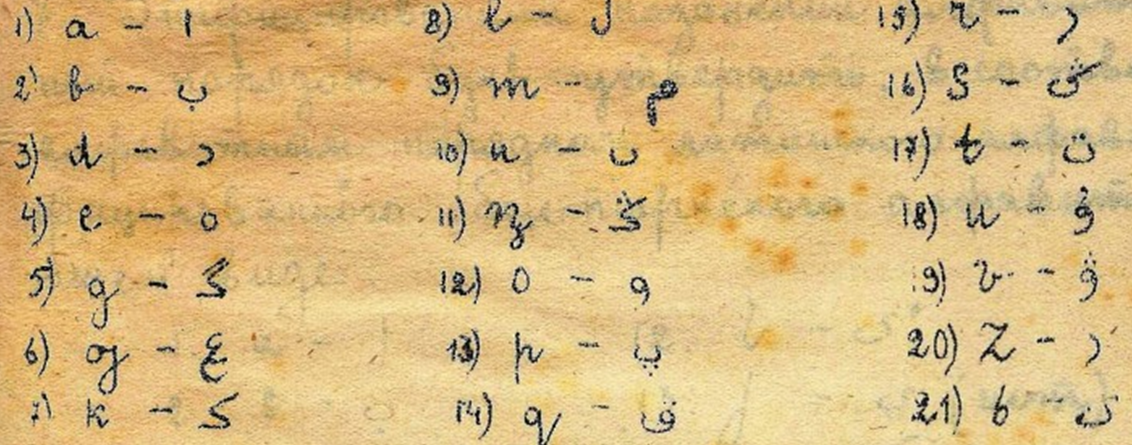 1) a - ا
2) b - ب
3) d - د
4) e - ه
5) g - گ
6) ƣ - ع
7) k - ك
8) l - ل
9) m - م
10) n - ن
11) ꞑ - ڭ
12) o - و
13) p - پ
14) q - ق
15) r - ر
16) s -
17) t - ت
18) u - ۇ
19) v - ۋ
20) z - ز
21) ь - ى